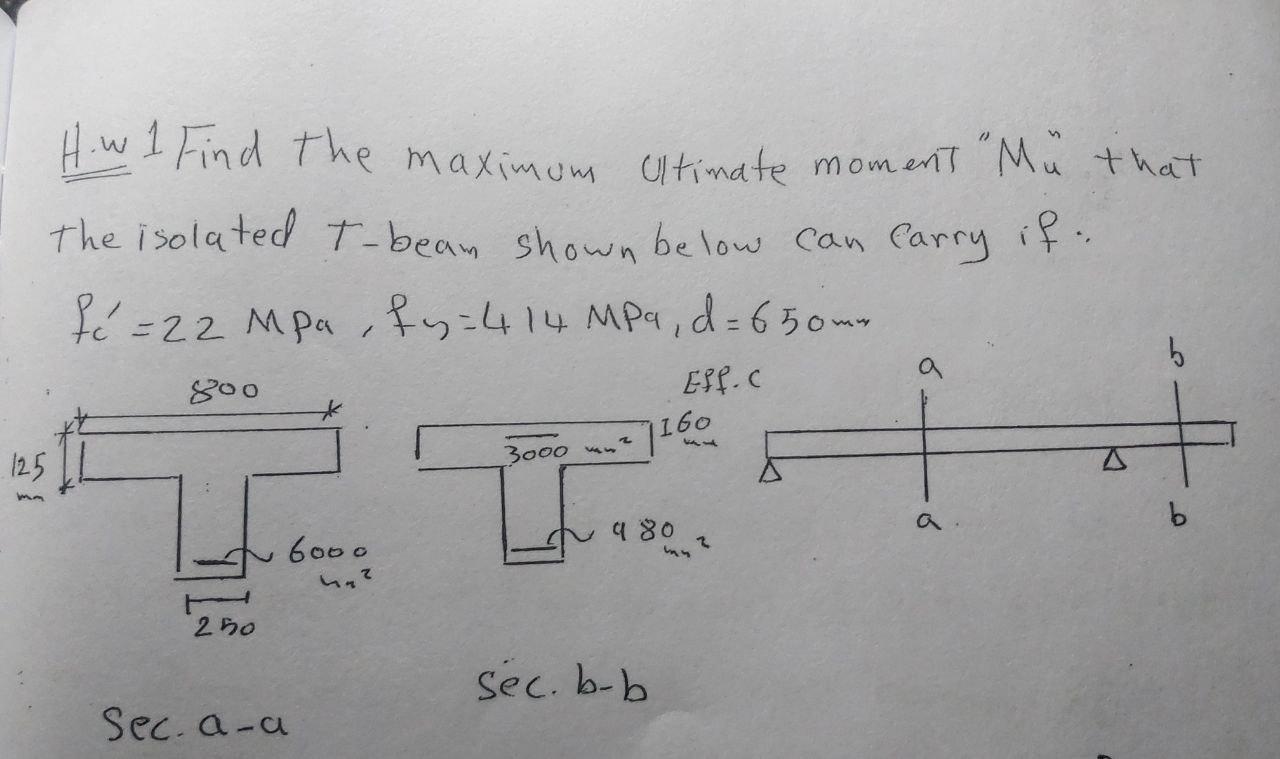 H.w 1 Find the maximum Ultimate moment "Mu" that
the isolated T-beam shown below can carry if:
fc' = 22 MPa, fy = 414 MPa, d = 650mm
800
125
mm
6000
mm²
250
Sec. a-a
Eff. C
160
mm
3000 mm²
980
mm²
Sec. b-b
a
b
a
b